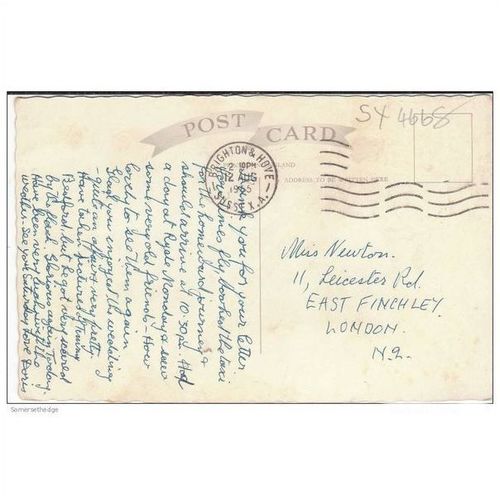 SY 4668
POST CARD
BRIGHTON & HOVE
2 10PM
12 AUG
1965
SUSSEX. A.
ADDRESS TO BE WRITTEN HERE
Thank you for your letter
time flies, booked the taxi
for the homeward journey &
should arrive at 10.30pm. Had
a day at Ryde Monday & saw
some very old friends - How
lovely to see them again.
Glad you enjoyed the wedding
quite an affair & very pretty
Have taken pictures of Timmy
Bedford, but he got very scared
by the flash. Glorious again today.
Have been very lucky with the
weather. See you Saturday Love
Miss Newton.
11, Leicester Rd.
EAST FINCHLEY.
LONDON.
N.2.
Somersethedge